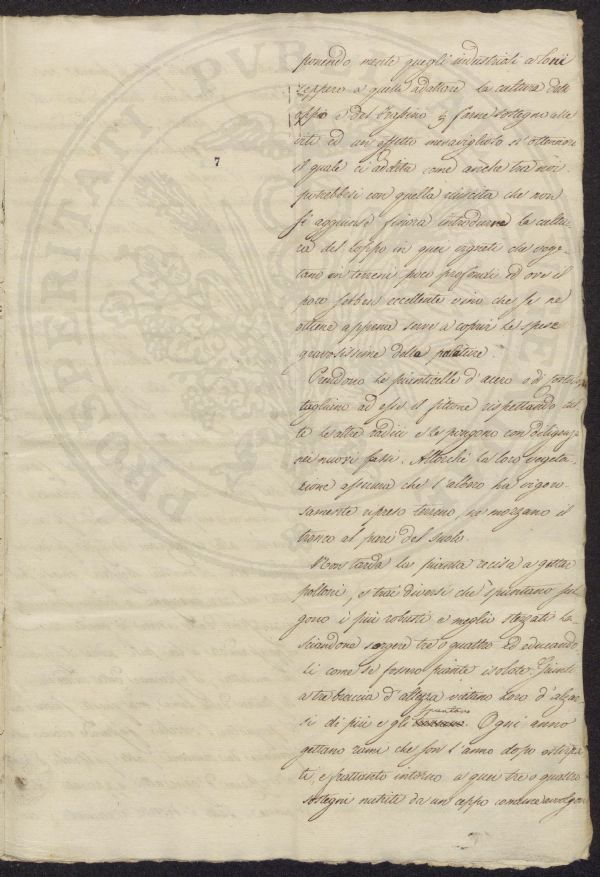 7
ponendo mente quegli industriali coloni
seppero a quelle adattare la cultura dell'
oppio e del frassino e farne sostegno alle
viti ed un effetto meraviglioso si ottennero
il quale ci addita come anche tra noi
potrebbesi con quella riuscita che non
si aggiunse finora introdurre la cultu-
ra del loppo in quei vigneti che vege-
tano in terreni poco profondi ed ove il
poco sebben eccellente vino che se ne
ottiene appena serve a coprir le spese
gravosissime della palatura.
Prendono le pianticelle d'acero o di
tagliano ad esse il fittone rispettando tut-
te le altre radici e le pongono con diligenza
nei nuovi fossi. Allorchè la loro vegeta-
zione assicura che l'albero ha vigoro-
samente ripreso terreno, ne mozzano il
tronco al pari del suolo.
Non tarda la pianta recisa a gettar
polloni, e trai diversi che spuntano scel-
gono i più robusti e meglio situati la-
sciandone sorgere tre o quattro ed educando-
li come se fossero piante isolate. Giunti
a tre braccia d'altezza vietano loro d'alzar-
si di più e gli spuntano. Ogni anno
gettano rami che son l'anno dopo
e, e frattanto intorno a quei tre o quattro
sostegni nutriti da un ceppo comune